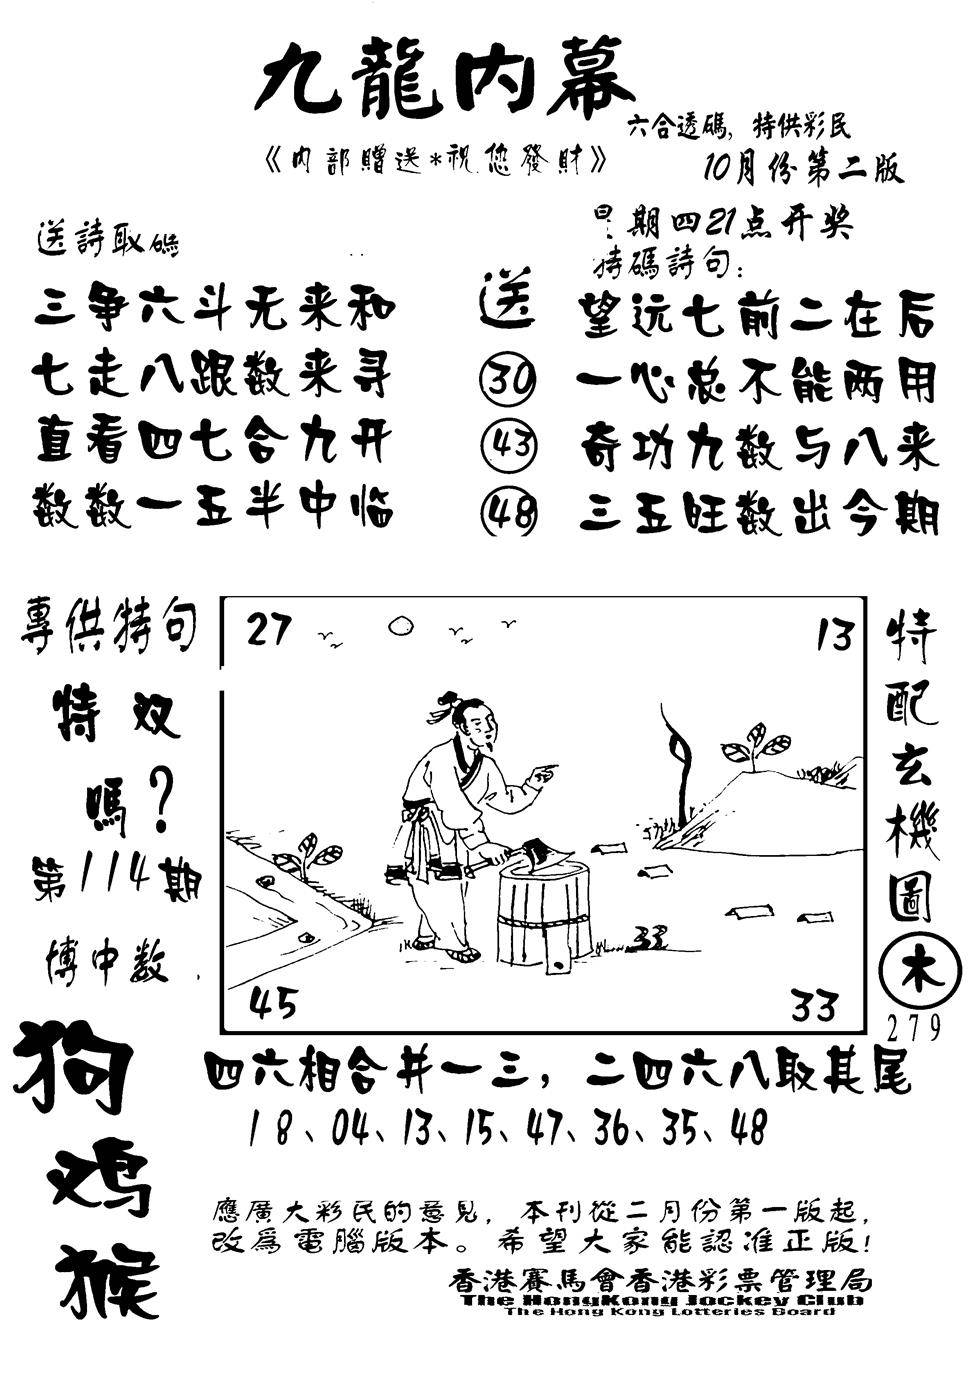 九龍內幕
六合透碼, 特供彩民
《内部贈送*祝您發財》
10月份第二版
期四21点开奖
送詩取碼
特碼詩句:
三争六斗无来和
七走八跟数来寻
直看四七合九开
数数一五半中临
送
30
43
48
望远七前二在后
一心总不能两用
奇功九数与八来
三五旺数出今期
專供特句
特效
嗎?
第114期
博中数
狗
鸡
猴
27
13
45
33
33
特配玄機圖
木
279
四六相合并一三,二四六八取其尾
18、04、13、15、47、36、35、48
應廣大彩民的意見, 本刊從二月份第一版起,
改爲電腦版本。希望大家能認准正版!
香港賽馬會香港彩票管理局
The HongKong Jockey Club
The Hong Kong Lotteries Board